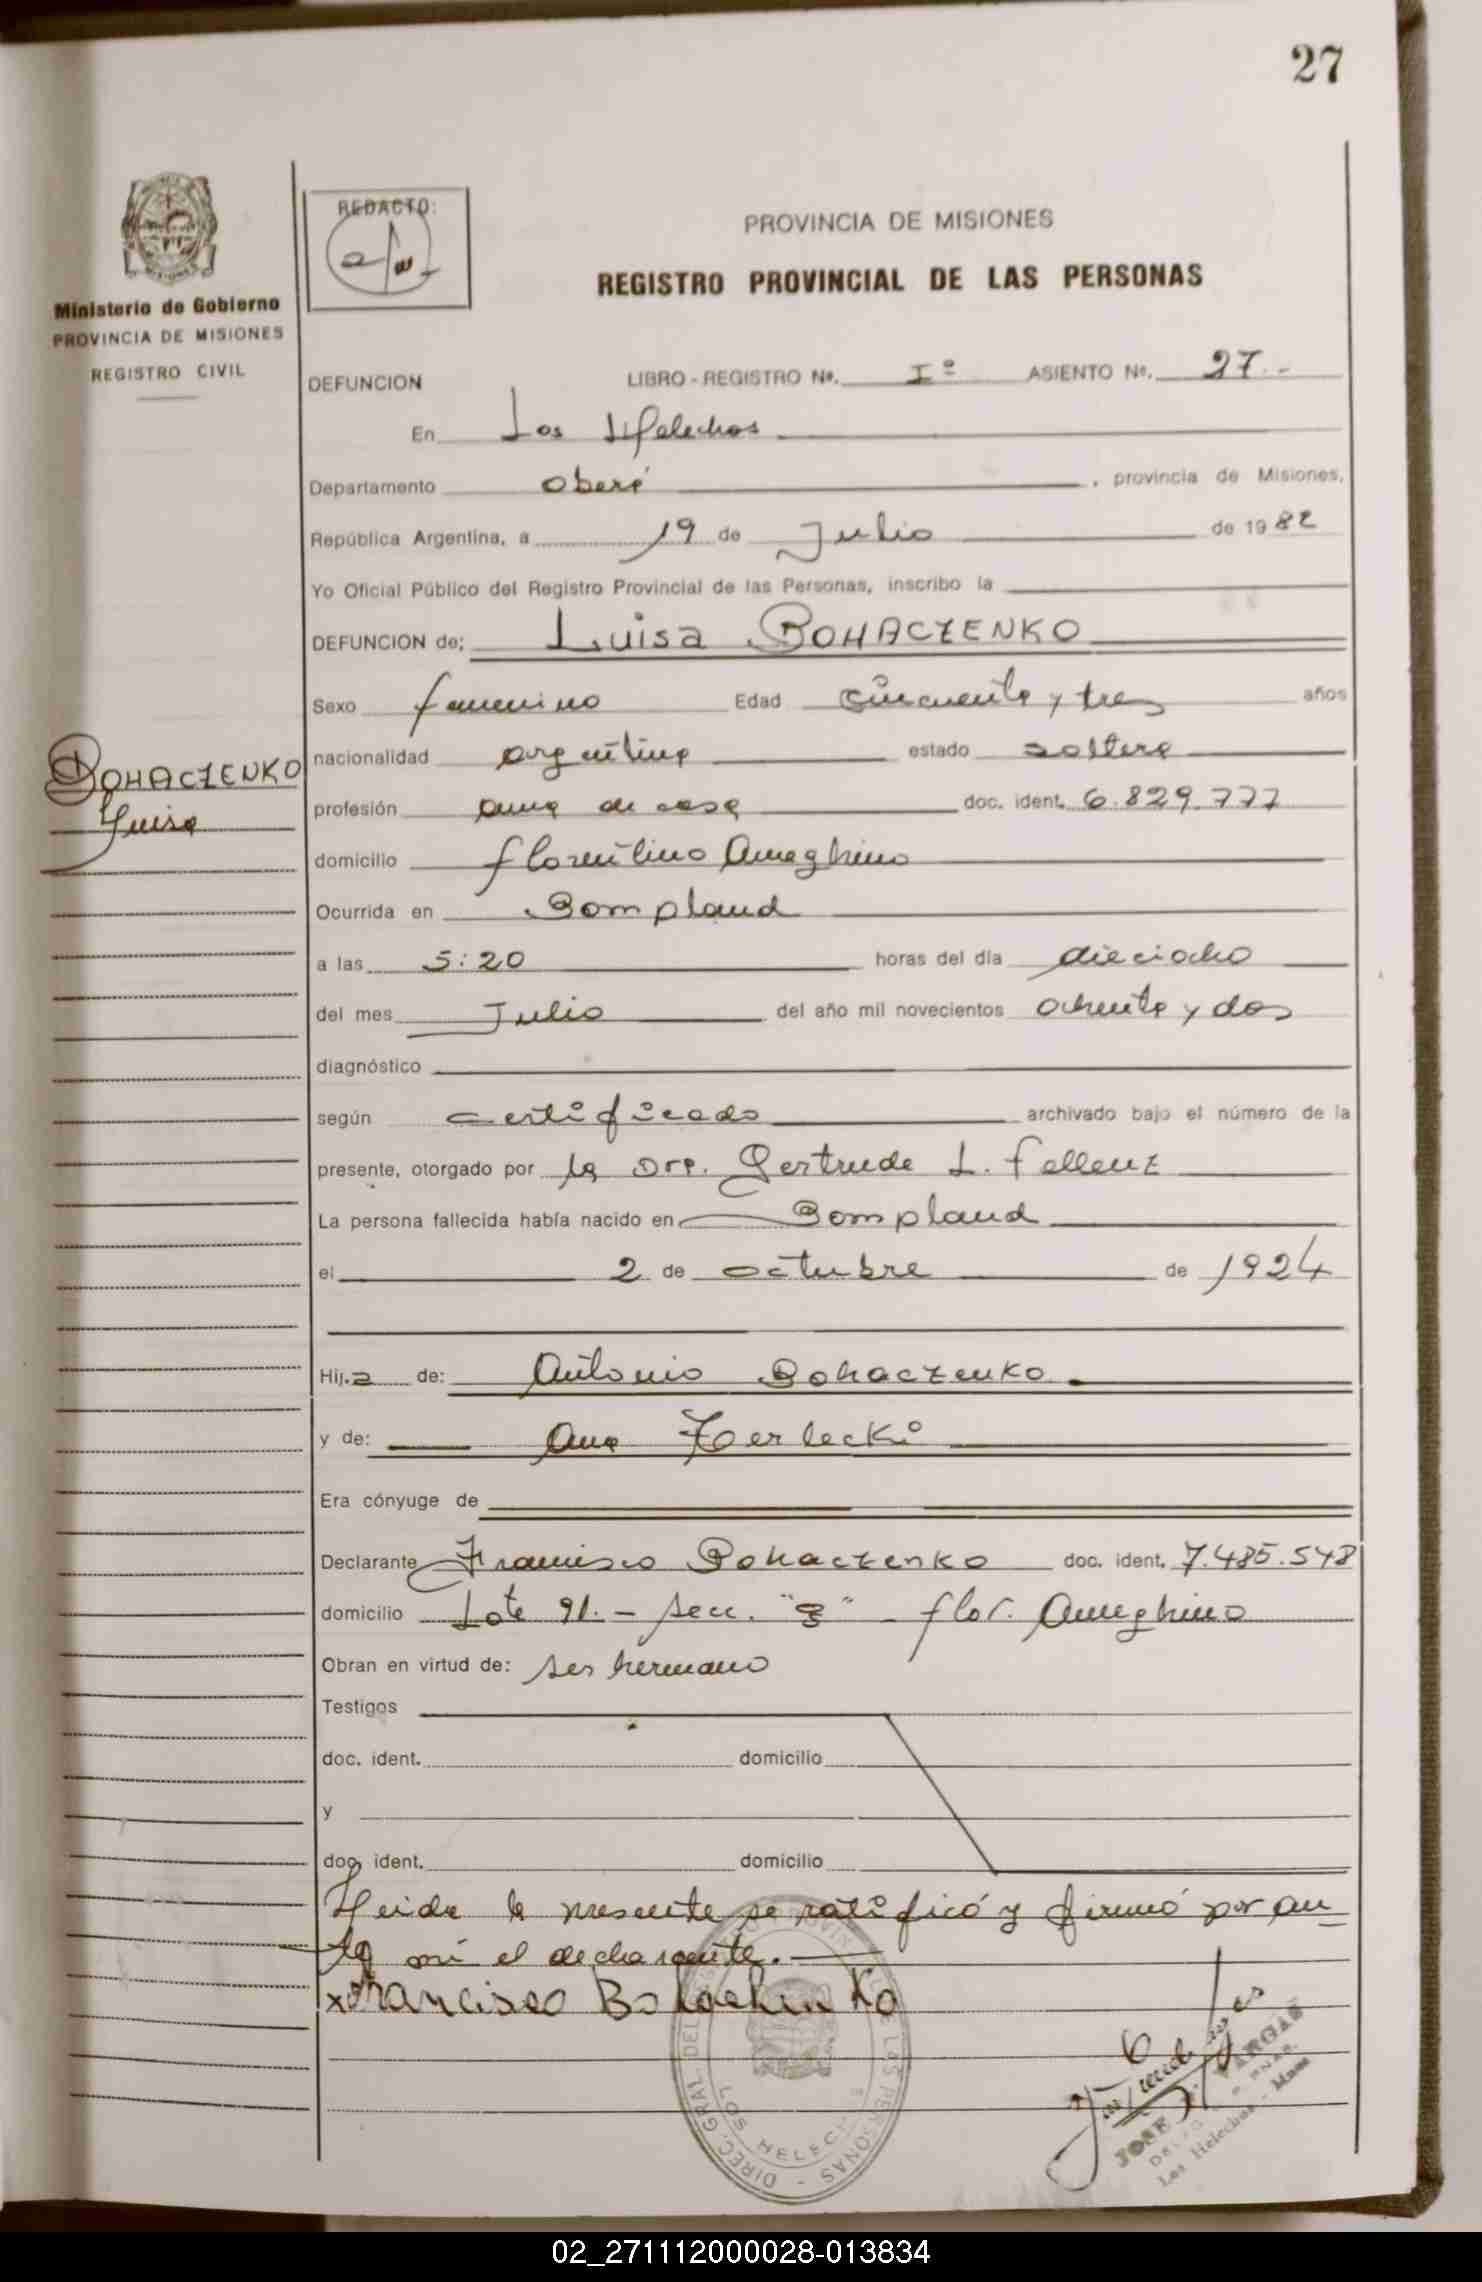 27
Ministerio de Gobierno
PROVINCIA DE MISIONES
REGISTRO CIVIL
REDACTO:
PROVINCIA DE MISIONES
REGISTRO PROVINCIAL DE LAS PERSONAS
DEFUNCION LIBRO - REGISTRO Nº. Iº ASIENTO Nº. 27.-
En Los Helechos
Departamento Oberá, provincia de Misiones,
República Argentina, a 19 de Julio de 1982
Yo Oficial Público del Registro Provincial de las Personas, inscribo la
DEFUNCION de: Luisa BOHACZENKO
Sexo femenino Edad cincuenta y tres años
BOHACZENKO
Luisa
nacionalidad argentina estado soltera
profesión ama de casa doc. ident. 6.829.777
domicilio Florentino Ameghino
Ocurrida en Bompland
a las 5:20 horas del día dieciocho
del mes Julio del año mil novecientos ochenta y dos
diagnóstico
según certificado archivado bajo el número de la
presente, otorgado por la Dra. Gertrude L. Fellenz
La persona fallecida había nacido en Bompland
el 2 de octubre de 1924
Hij.a de: Antonio Bohaczenko
y de: Ana Zerlecki
Era cónyuge de
Declarante Francisco Bohaczenko doc. ident. 7.485.548
domicilio Lote 91.- Secc. "8" - Flor. Ameghino
Obran en virtud de: ser hermano
Testigos
doc. ident. domicilio
y
doc. ident. domicilio
Leida la presente se ratificó y firmó por an
te mi el declarante.
x Francisco Bohachenko
DIREC. GRAL. DEL REGISTRO PROVINCIAL DE LAS PERSONAS -
LOS HELECHOS
JOSE VARGAS
Los Helechos - Mnes
02_271112000028-013834